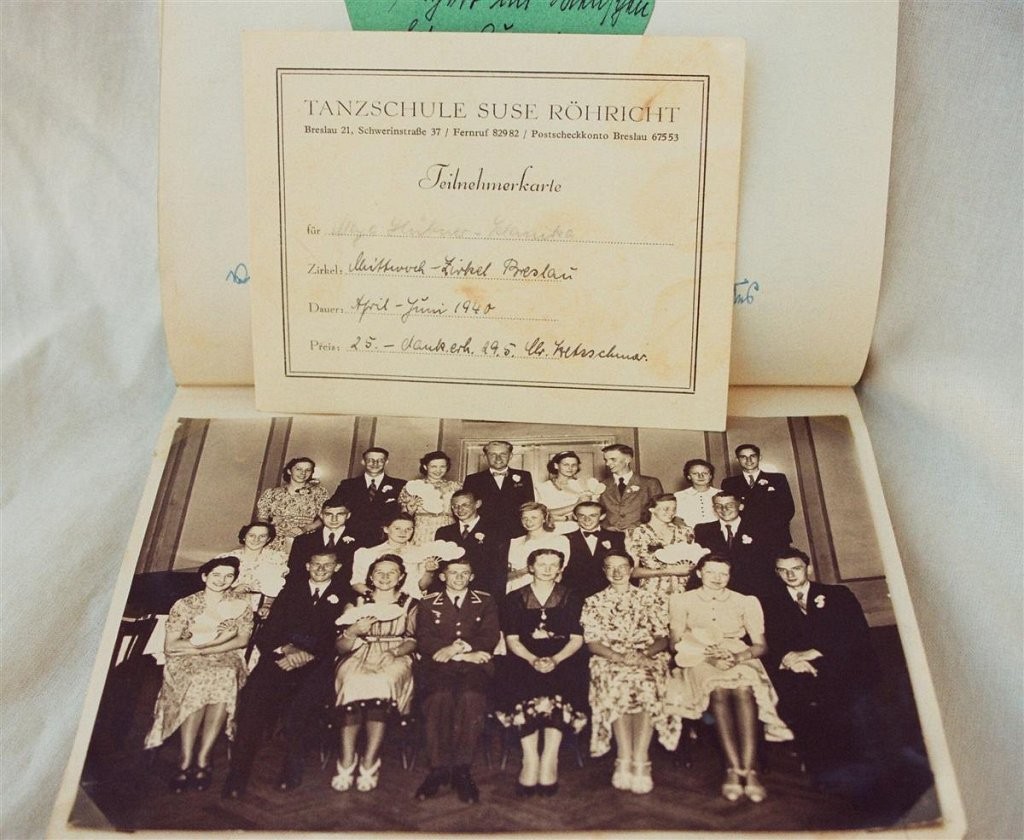 TANZSCHULE SUSE RÖHRICHT
Breslau 21, Schwerinstraße 37 / Fernruf 82982 / Postscheckkonto Breslau 67553
Teilnehmerkarte
für
Zirkel: Mittwoch-Zirkel Breslau
Dauer: April-Juni 1940
Preis: 25.- dank.erh. 29.5.